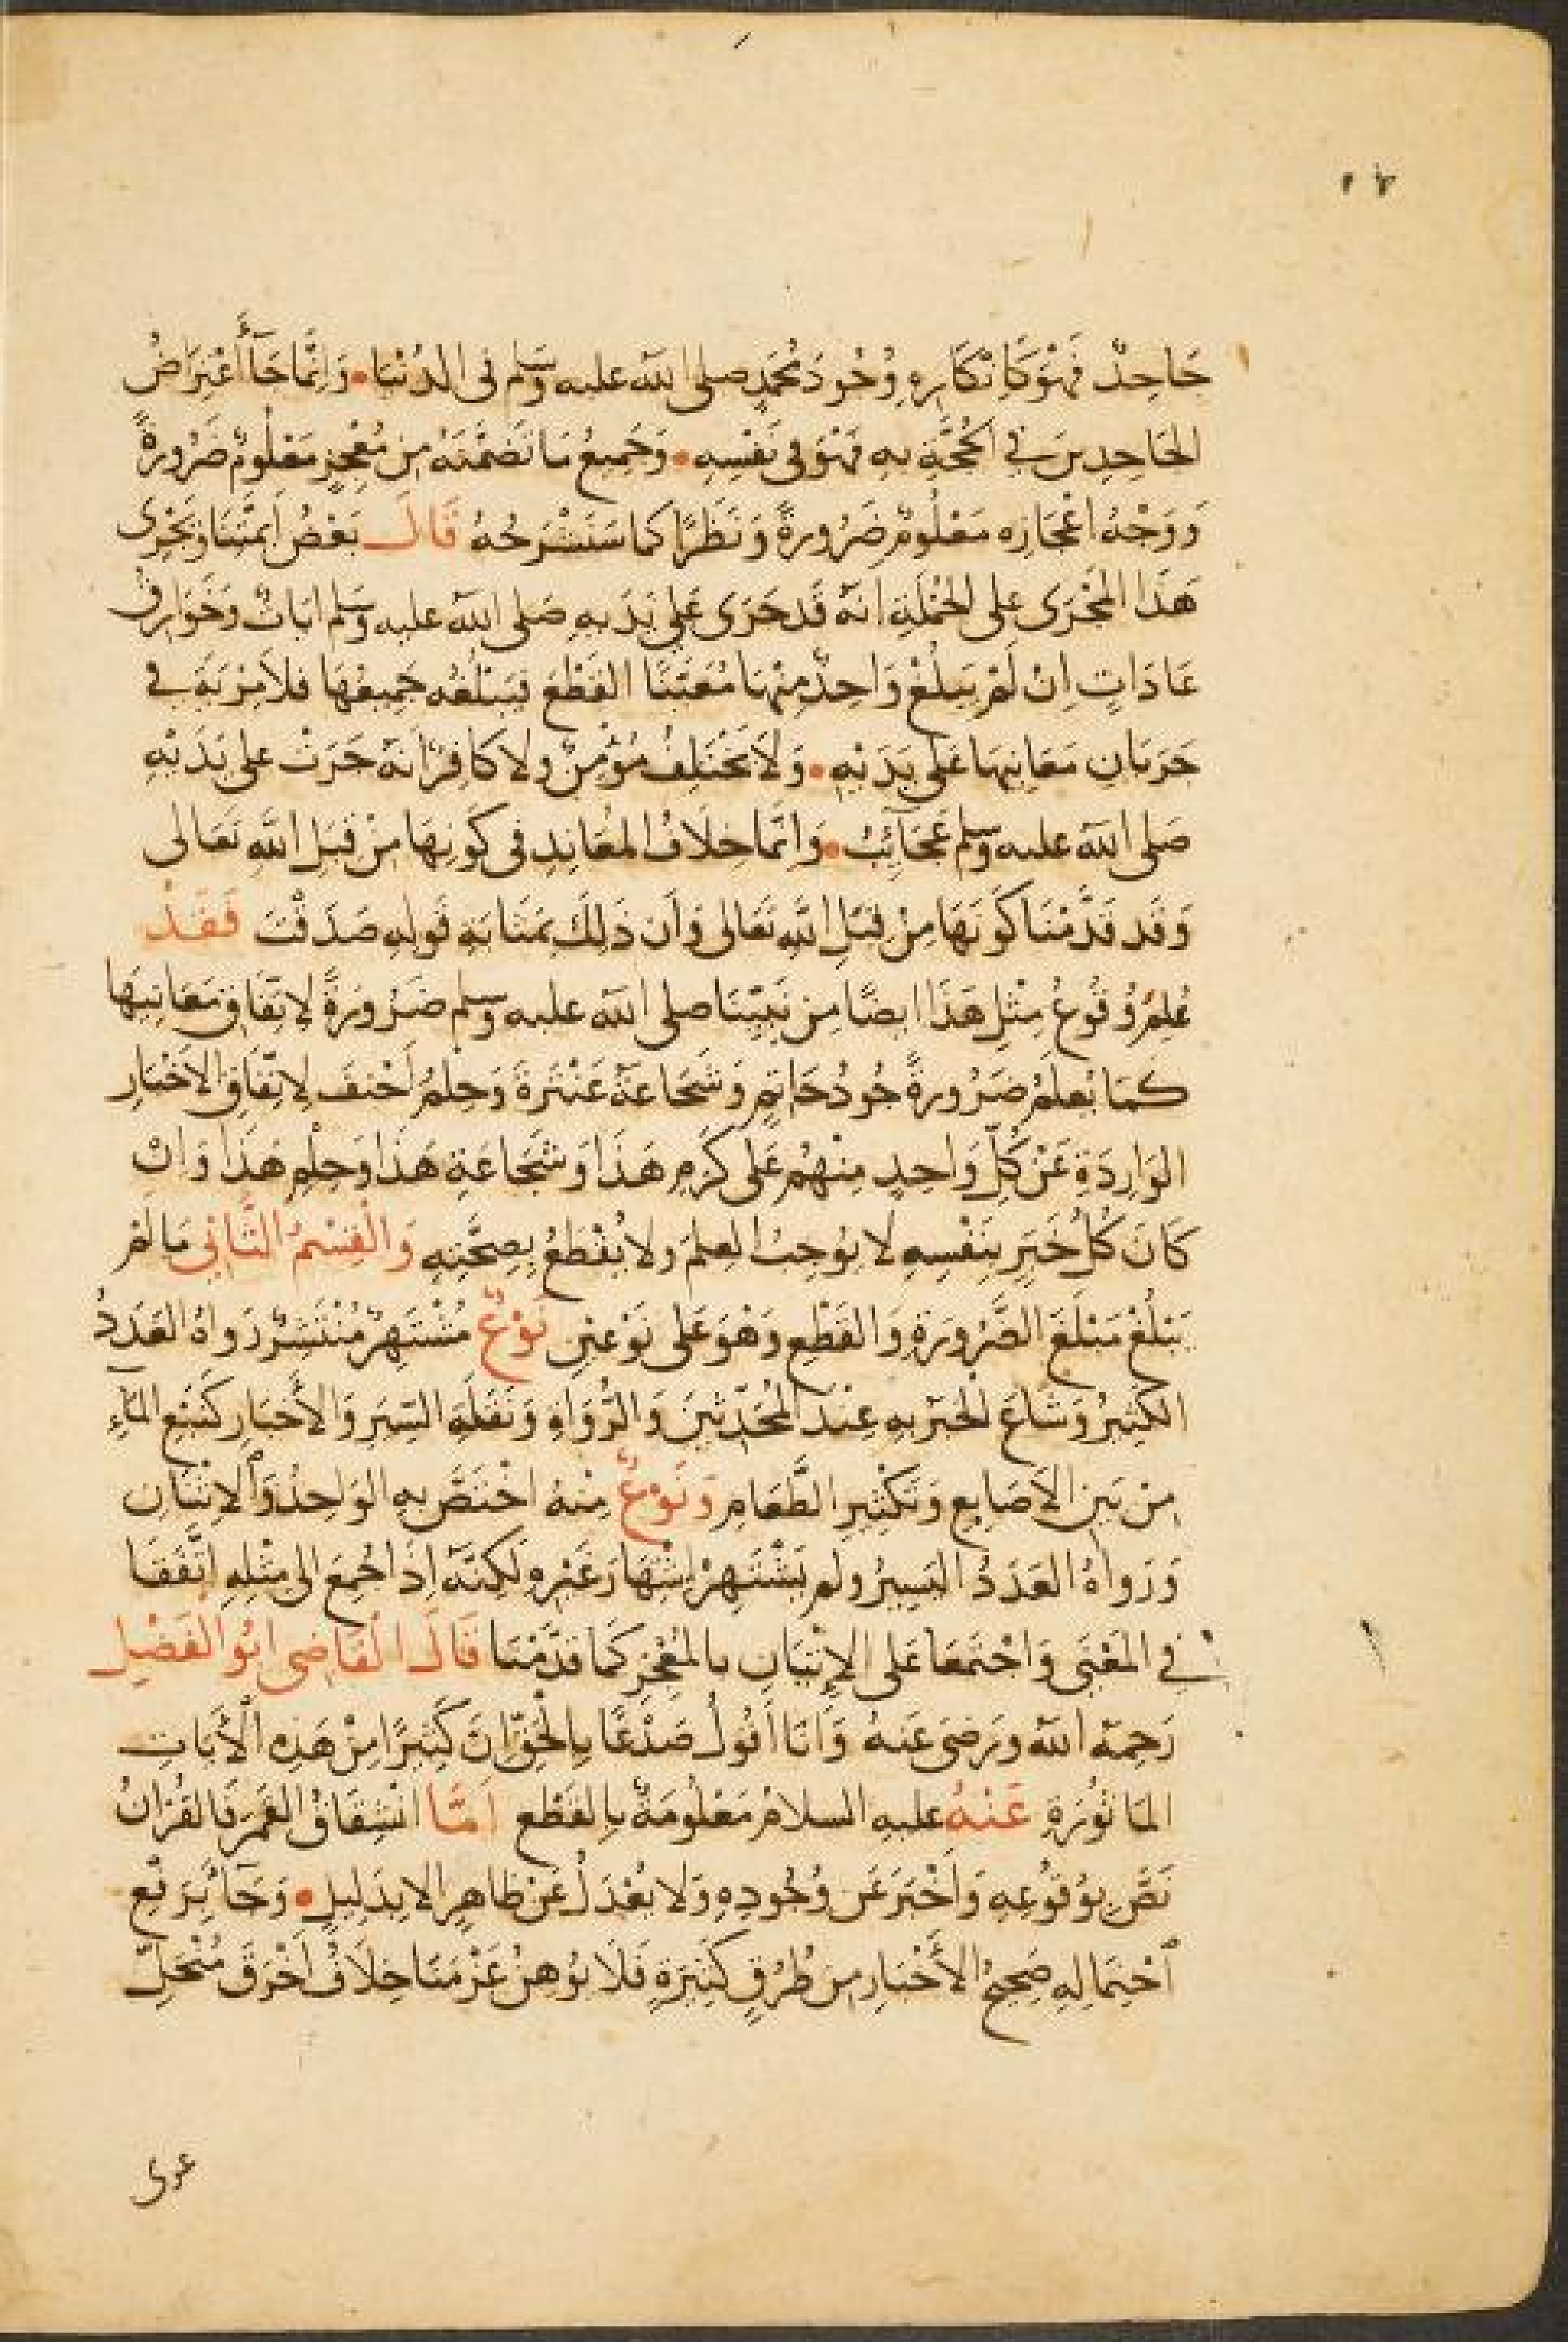 جَاحِدٌ فَهْوَ كَاِنْكَارِهِ وُجُودَ مُحَمَّدٍ صلى الله عليه وسلم فى الدُنْيَا • وَاِنَّمَا جَآ أَعْتِرَاضُ
الجَاحِدِينَ فى الحُجَّةِ بِهِ فَهْوَ فى نَفْسِهِ • وَجَمِيعُ مَا تَضَمَّنَهُ مِن مُعْجِزٍ مَعْلُومٌ ضَرُورةً
وَوَجْهُ اعْجَازِه مَعْلُومٌ ضَرُورةً وَنَظَرًا كما سَنَشْرَحُهُ قَالَ بَعْضُ اَيِمَّتِنَا وَيَجْرِى
هَذَا المَجْرَى على الجُمْلَةِ انَهُ قَد جَرَى عَلَى يَدَيهِ صَلى الله عليه وسلم ايَاتٌ وَخَوَارِقُ
عَادَاتٍ اِنْ لَمْ يَبلُغْ وَاحِدٌ مِنْهَا مُعَيَّنًا القَطْعَ فَيَبْلُغُه جَمِيعُهَا فلاَ مِرْيَةَ فى
جَرَيَانِ مَعَانِيهَا عَلى يَدَيْهِ • وَلاَ يَخْتَلِفُ مُؤْمِنٌ ولا كَافِرٌ انَهُ جَرَتْ على يَدَيْهِ
صَلى الله عليه وسلم عَجَآئِبُ • وَاِنَّمَا خِلَافُ المعَانِدِ فى كَونِهَا مِنْ قِبَلِ اللهِ تعَالى
وَقَد قَدَّمْنَا كَوْنَهَا مِنْ قِبَلِ اللهِ تعَالى وَاَن ذَلِكَ بمَثَابَةِ قَولِهِ صَدَقْتَ فَقَدْ
عُلِمَ وُقُوعُ مِثْلِ هَذَا ايضًا مِن نَبِيِّنَا صلى الله عليه وسلم ضَرُورَةً لاِتِّفَاقِ مَعَانِيهَا
كمَا يُعلَمُ ضَرُورةً جُودُ حَاتِمٍ وَشَجَاعَةُ عَنْتَرَةَ وَحِلمُ اَحْنفَ لاِتِّفَاقِ الاَخْبَارِ
الوَارِدَةِ عَنْ كُلِّ وَاحِدٍ مِنْهُم عَلى كَرَمِ هَذَا وَشَجَاعَةِ هَذَا وَحِلْمِ هَذَا وَانْ
كَانَ كُلُّ خَبَرٍ بِنَفْسِهِ لا يُوجِبُ العِلمَ ولا يُقْطَعُ بِصِحَّتِهِ وَالقِسْمُ الثَّانِي مَا لمْ
يَبْلُغْ مَبْلَغَ الضَّرُورَةِ وَالقَطْعِ وَهْوَ عَلى نَوْعَينِ نَوْعٌ مُشْتَهِرٌ مُنْتَشِرٌ رَوَاهُ العَدَدُ
الكَثِيرُ وَشَاعَ الخبَر بِهِ عِنْدَ المُحَدِّثينَ وَالرُّوَاةِ وَنَقَلَةِ السِّيَرِ وَالأَخْبَارِ كَنَبْعِ المَآءِ
مِنْ بَينِ الاَصَابِعِ وَتَكْثِيرِ الطَّعَامِ وَنَوْعٌ مِنْهُ اخْتَصَّ بِهِ الوَاحِدُ وَالاِثْنَانِ
وَرَوَاهُ العَدَدُ اليَسِيرُ ولم يَشْتَهِرْ اِشْتِهَارَ غَيْرِهِ لَكِنَّهُ اِذَا جُمِعَ الى مِثْلِهِ اتَّفَقَا
فى المَعْنَى وَاجْتَمَعَا عَلى الاِتْيَانِ بالمعْجِزِ كَمَا قدَّمْنَا قَالَ القَاضِى ابُو الفَضْلِ
رَحِمَهُ الله وَرَضِىَ عَنهُ وَاَنَا اَقُولُ صَدْعًا بِالحَقِّ اِنَ كَثِيرًا مِنْ هَذِهِ الأَيَاتِ
المَاثُورَةِ عَنْهُ عليهِ السلامُ مَعْلُومَةٌ بِالقَطْعِ اَمَّا انْشِقَاقُ القَمَرِ فَالقُرْانُ
نَصَّ بِوُقُوعِهِ وَاَخْبَرَ عَن وُجُودِهِ وَلا يُعْدَلُ عَنْ ظاهِرٍ الا بِدَلِيلٍ • وَجَآ بِرَفْعِ
اَحْتِمَالِهِ صَحِيحُ الأَخْبَارِ مِن طُرُقٍ كَثِيرَةٍ فَلَا يُوهِنُ عَزْمَنَا خِلَافُ اَخْرَقَ مُنْحَلِّ
عرى